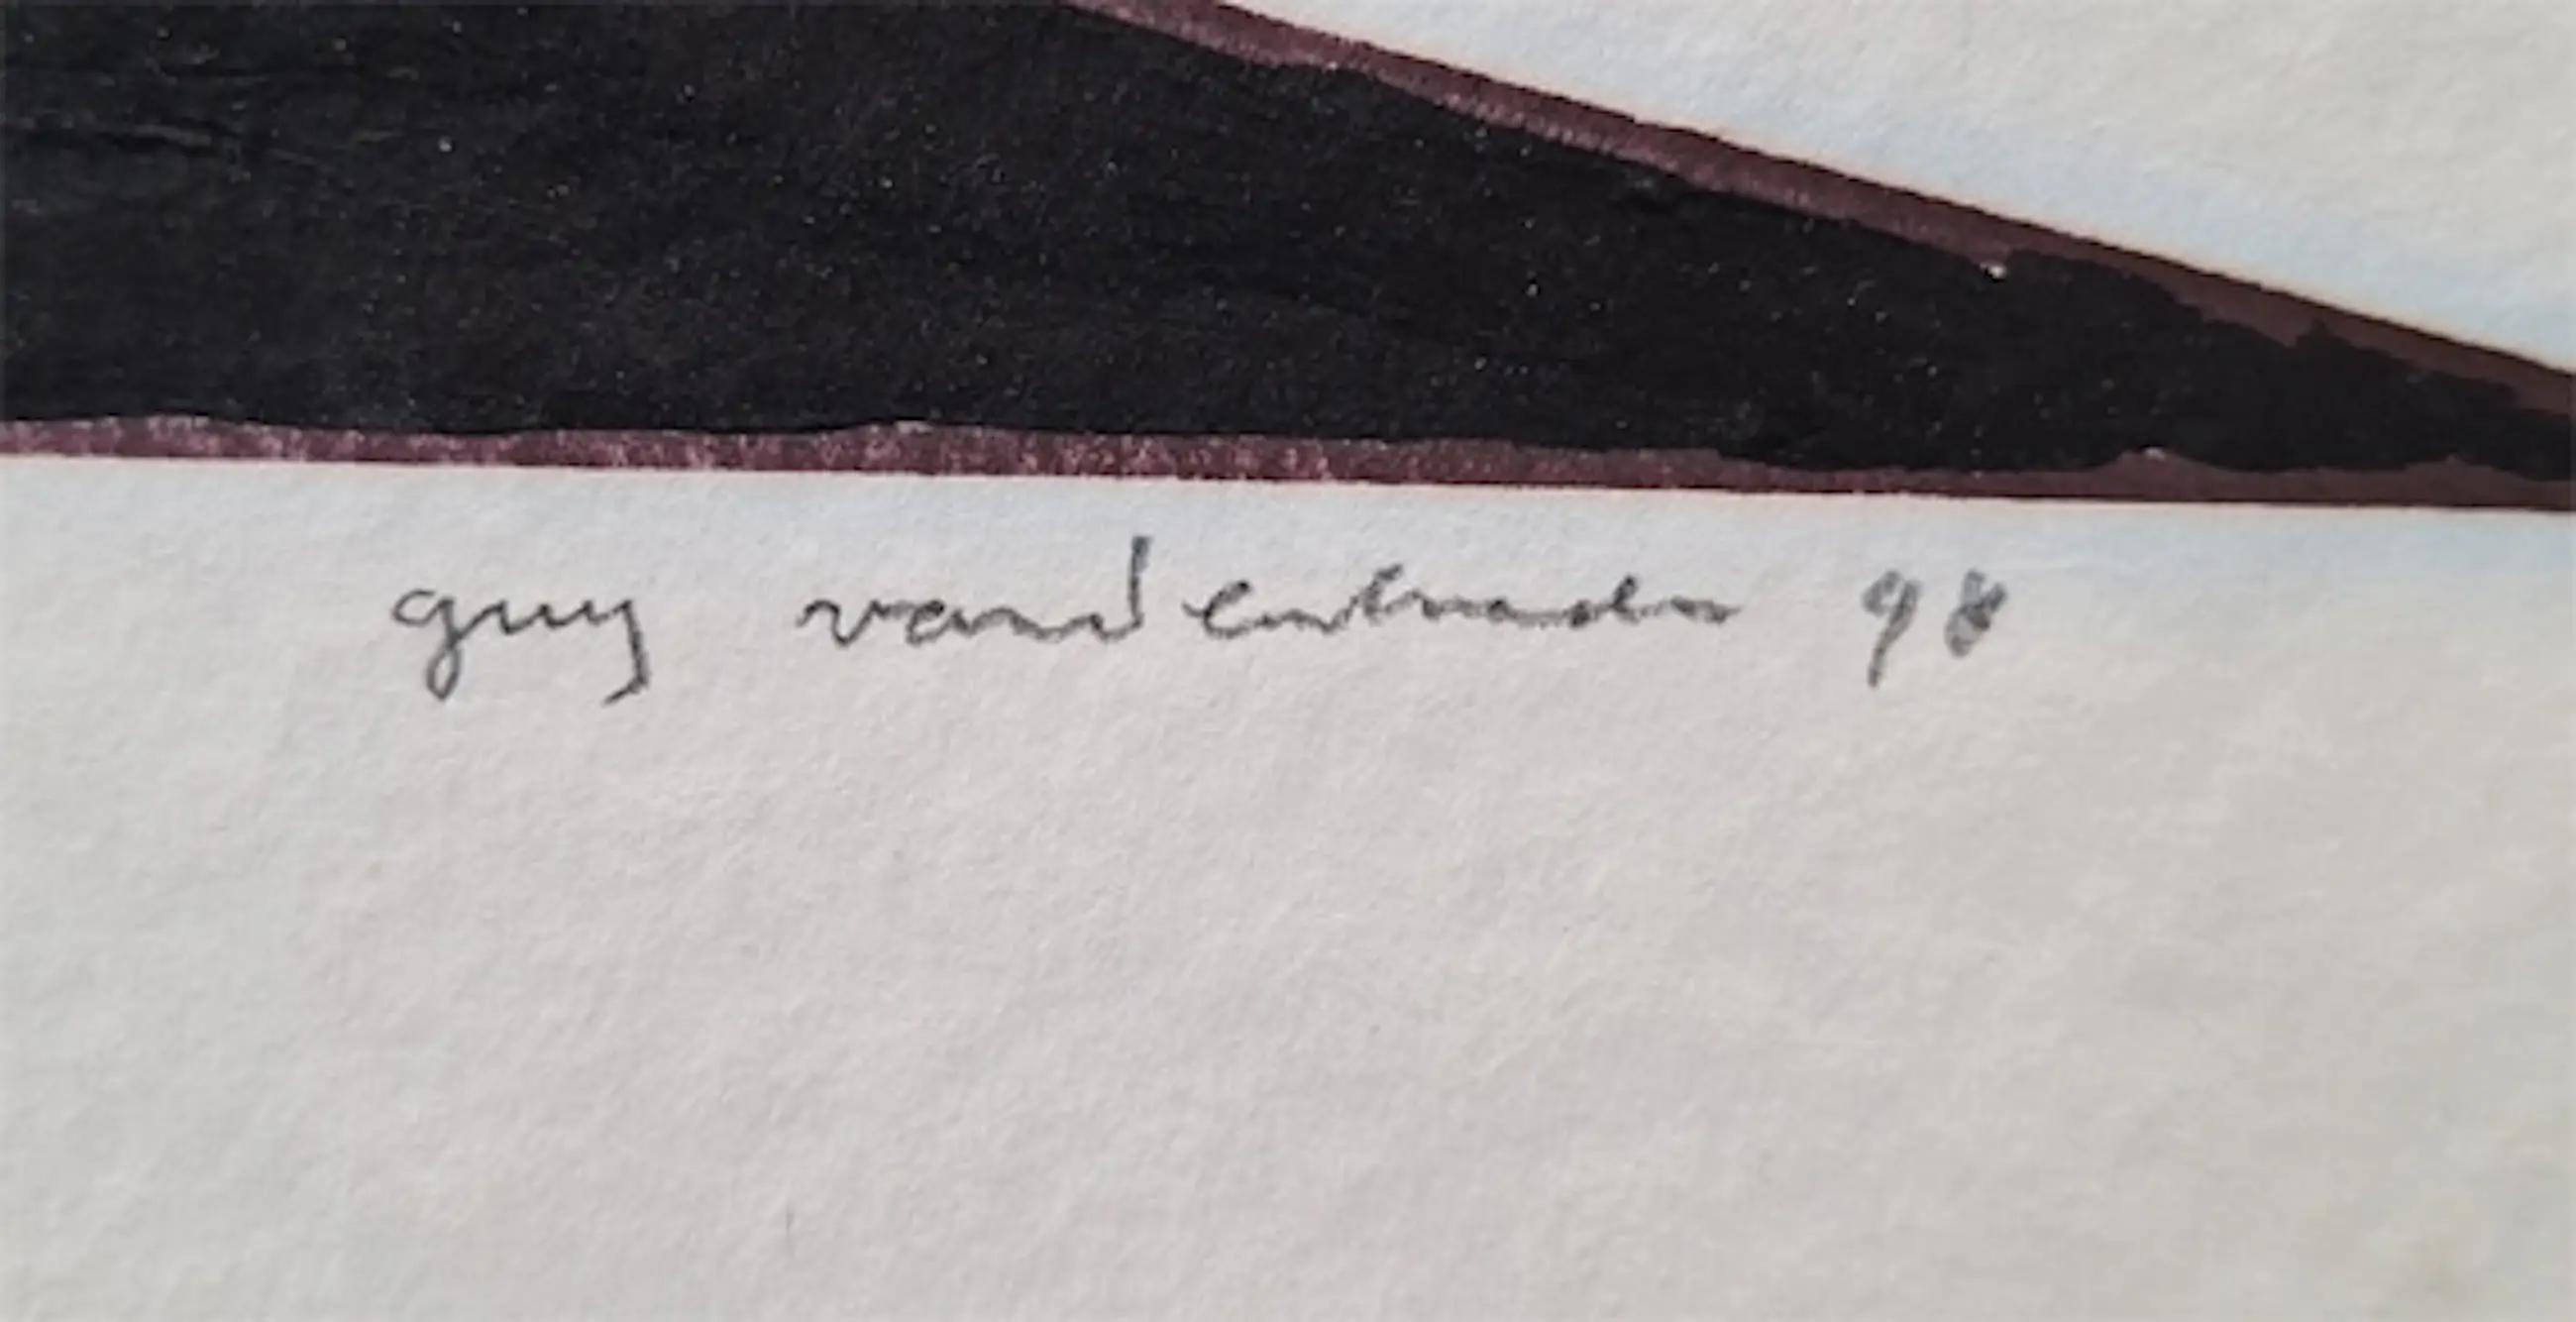 guy vandenbranden 98